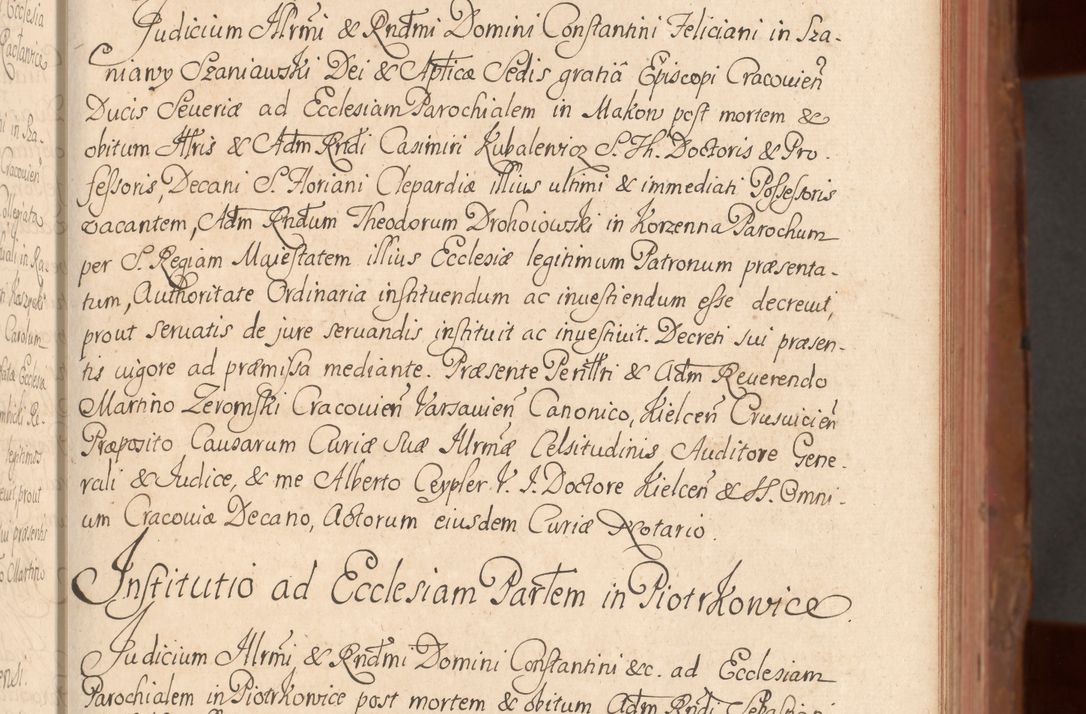 Judicium Jllrm̃i & Rndm̃i Domini Constantini Feliciani in Sza-
niawy Szaniawski Dei & Apticæ Sedis gratiâ Episcopi Cracovień
Ducis Severiæ ad Ecclesiam Parochialem in Makow post mortem &
obitum Jllris & Adm Rndi Casimiri Kubalewicz S. Th. Doctoris & Pro-
fessoris, Decani S. Floriani Clepardiæ illius ultimi & immediati Possessoris
vacantem, Adm Rndum Theodorum Drohoiowski in Korzenna Parochum
per S. Regiam Maiestatem illius Ecclesiæ legitimum Patronum præsenta-
tum, Authoritate Ordinaria instituendum ac investiendum esse decrevit,
prout servatis de jure servandis instituit ac investivit. Decreti sui præsen-
tis vigore ad præmissa mediante. Præsente Perillri & Adm Reverendo
Martino Zeromski Cracovień Varsavień Canonico, Kielceń Crusvicień
Præposito Causarum Curiæ Suæ Jllrmæ Celsitudinis Auditore Gene-
rali & Judice, & me Alberto Ceypler V. J. Doctore Kielceń & SS. Omni-
um Cracoviæ Decano, Actorum eiusdem Curiæ Notario.
Institutio ad Ecclesiam Parlem in Piotrkowice.
Judicium Jllrm̃i & Rndm̃i Domini Constantini &c. ad Ecclesiam
Parochialem in Piotrkowice post mortem & obitum Adm Rndi Sebastiani